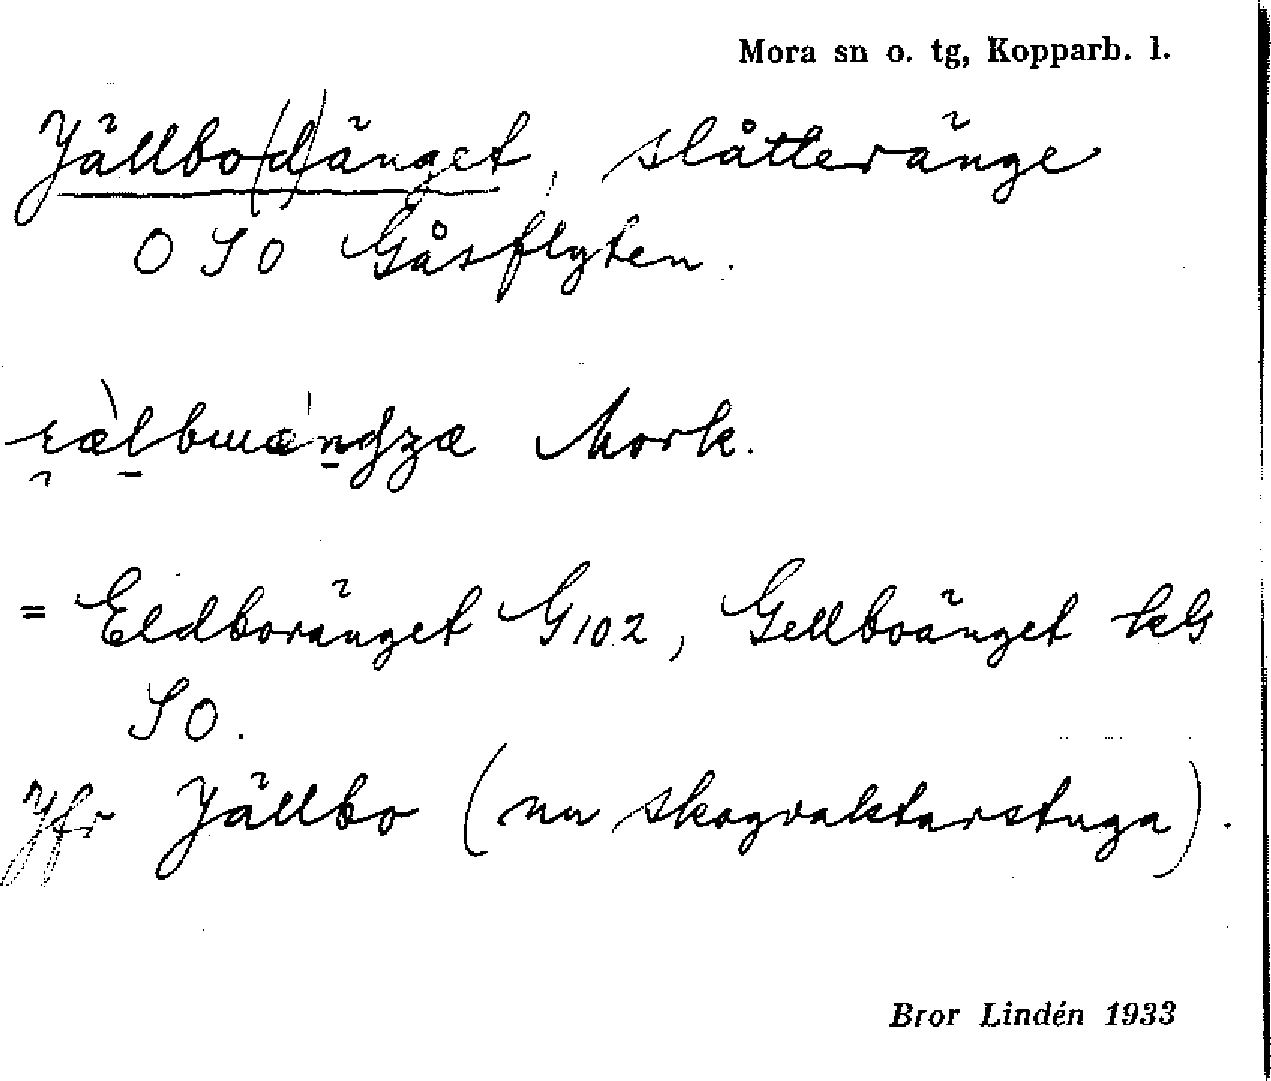 Mora sn o. tg, Kopparb. l.
Jällbo(d)änget, slåtteränge
O S O Gåsflyten.
Mork.
= Eldboränget G102, Gellboänget kG
S O.
Jfr Jällbo (nu skogvaktarstuga).
Bror Lindén 1933